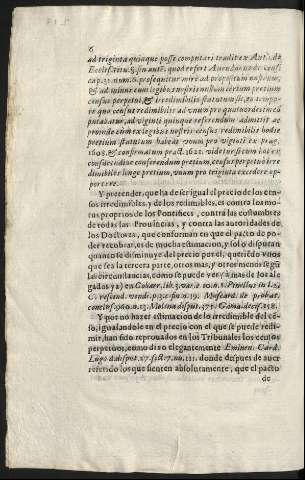 6
ad triginta quinque posse computari tradit ex Aut. de
Eccles. titu. §. sin autē. quod refert Avendan. ubi de censi.
cap. 31. num. 6. prosequitur mirè ad propositum nostrum,
& ad minus cum legibus nostris nullum certum pretium
census perpetui, & irredimibilis statutum sit, eo tempore
quo census redimibilis ad unum pro quatuordecim
putabatur, ad viginti quinque referendum admittit ac
proinde cum ex legibus nostris census redimibilis hodie
pretium statutum habeat unum pro viginti ex Prag.
1608. & confirmatum pr act. 1621. videtur sicut habet in
consuetudine conferendum pretium, census perpetui irredimibilis
longe pretium, unum pro triginta excedere oportere.
Y pretender, que ha de ser igual el precio de los censos
irredimibles, y de los redimibles, es contra los motus
proprios de los Pontifices, contra las costumbres
de todas las Provincias, y contra las autoridades de
los Doctores, que conforman en que el pacto de poder
recobrar, es de mucha estimacion, y solo disputan
quanto se disminuye del precio por el, queriēdo unos
que sea la tercera parte, otros mas, y otros menos segū
las circunstancias, como se puede ver, à mas de los alegados
en Covarr. lib. 3. var. c. 10. n. 2. Pinellus in l. 2.
C. rescind. vend. p. 3. c. fin. n. 19. Mascard. de probat.
conclus. 360. n. 13. Molina disput. 375. Gama decis. 358.
Y por no hazer estimacion de lo irredimible del censo,
igualandole en el precio con el que se puede redimir,
han sido reprouados en los Tribunales los censos
perpetuos, como dixo elegantemente Eminen. Card.
Lugo d. disput. 27. sect. 7. nu. 111. donde despues de auer
referido los que sienten absolutamente, que el pacto
de